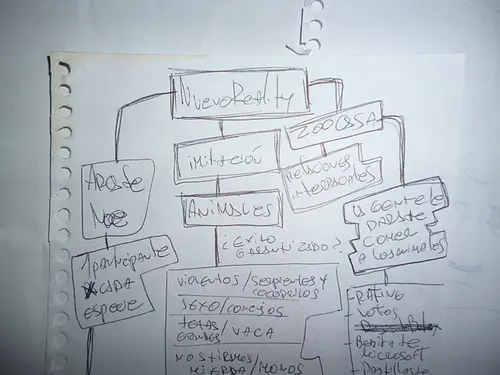 NuevoReality
ZOOCASA
iMiTACiÓN
RELACIONES
INTERRACIALES
ARCA DE
NOE
ANiMALES
LA GENTE LE
DARA DE
COMER
A LOS ANIMALES
1 participante
X CADA
ESPECIE
¿EXITO
GARANTIZADO?
VIOLENTOS / SERPIENTES Y
COCODRILOS
SEXO / CONEJOS
TETAS
GRANDES / VACA
NOS TIRAMOS
MIERDA / MONOS
- RATING
- VOTOS
- Beneficio de
Microsoft